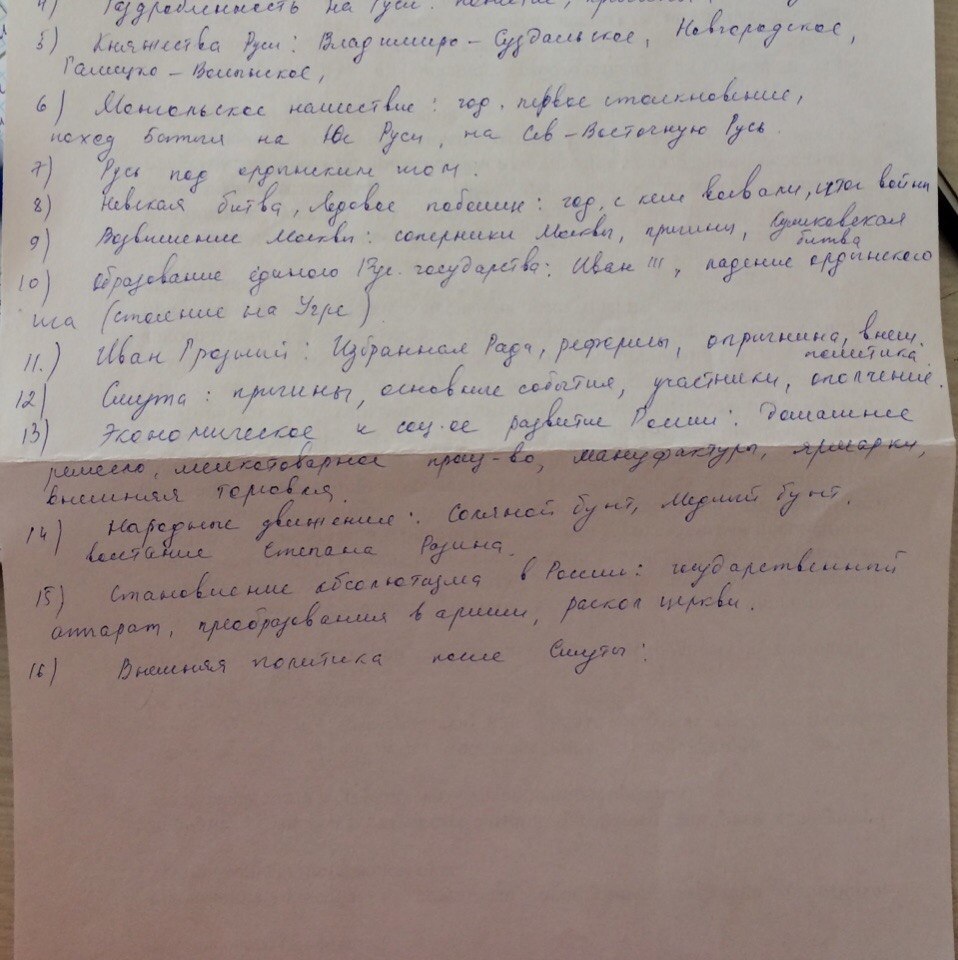 4) Раздробленность на Руси: понятие,
5) Княжества Руси: Владимиро-Суздальское, Новгородское,
Галицко-Волынское,
6) Монгольское нашествие: год. первое столкновение,
поход Батыя на Юг Руси, на Сев-Восточную Русь.
7) Русь под ордынским игом.
8) Невская битва, Ледовое побоище: год, с кем воевали, итог войны
9) Возвышение Москвы: соперники Москвы, причины, Куликовская
битва
10) Образование единого Рус. государства: Иван III, падение ордынского
ига (стояние на Угре)
11.) Иван Грозный: Избранная Рада, реформы, опричнина, внеш.
политика
12) Смута: причины, основные события, участники, ополчение.
13) Экономическое и соц-ое развитие России: Домашнее
ремесло, мелкотоварное произ-во, мануфактуры, ярмарки,
внешняя торговля.
14) Народные движения: Соляной бунт, Медный бунт.
восстание Степана Разина.
15) Становление абсолютизма в России: государственный
аппарат, преобразования в армии, раскол церкви.
16) Внешняя политика после Смуты: